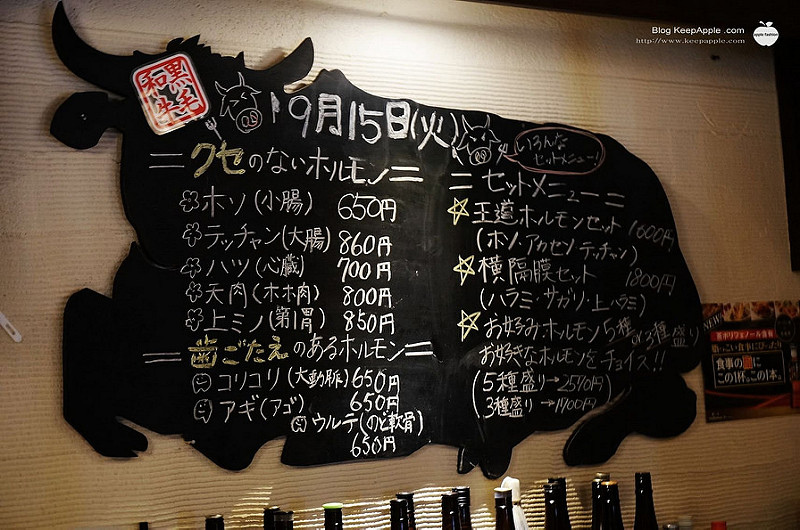 Blog KeepApple .com
http://www.keepapple.com
apple fashion
黒毛和牛
9月15日(火)
クセのないホルモン
ホソ(小腸) 650円
テッチャン(大腸) 860円
ハツ(心臓) 700円
天肉(ホホ肉) 800円
上ミノ(第1胃) 850円
歯ごたえのあるホルモン
コリコリ(大動脈) 650円
アギ(アゴ) 650円
ウルテ(のど軟骨)
650円
いろんな
セットメニュー!
セットメニュー
王道ホルモンセット 1600円
(ホソ・アカセン テッチャン)
横隔膜セット 1800円
(ハラミ・サガリ・上ハラミ)
お好みホルモン5種or3種盛り
お好きなホルモンをチョイス!!
(5種盛り→2570円)
(3種盛り→1700円)
NEW
茶ポリフェノール含有
食事の脂に
この1杯。この1本。